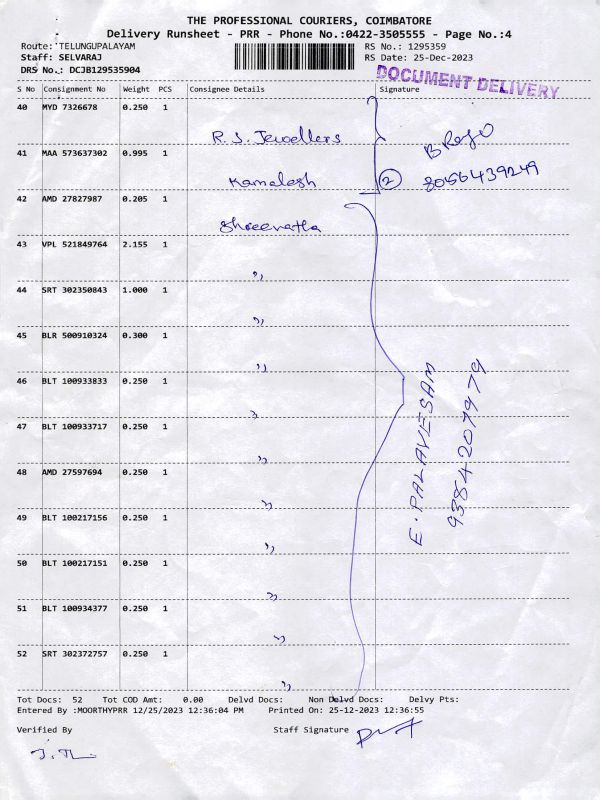 THE PROFESSIONAL COURIERS, COIMBATORE
Delivery Runsheet - PRR - Phone No.:0422-3505555 - Page No.:4
Route: TELUNGUPALAYAM RS No.: 1295359
Staff: SELVARAJ RS Date: 25-Dec-2023
DRS No.: DCJB129535904 DOCUMENT DELIVERY
S No Consignment No Weight PCS Consignee Details Signature
40 MYD 7326678 0.250 1
R.S. Jewellers
41 MAA 573637302 0.995 1
Kamalesh 2 8056439249
42 AMD 27827987 0.205 1
43 VPL 521849764 2.155 1
"
44 SRT 302350843 1.000 1
"
45 BLR 500910324 0.300 1
"
46 BLT 100933833 0.250 1
"
47 BLT 100933717 0.250 1
"
48 AMD 27597694 0.250 1
"
49 BLT 100217156 0.250 1
"
50 BLT 100217151 0.250 1
"
51 BLT 100934377 0.250 1
"
52 SRT 302372757 0.250 1
"
E. PALAVESAM
9384207979
Tot Docs: 52 Tot COD Amt: 0.00 Delvd Docs: Non Delvd Docs: Delvy Pts:
Entered By :MOORTHYPRR 12/25/2023 12:36:04 PM Printed On: 25-12-2023 12:36:55
Verified By Staff Signature